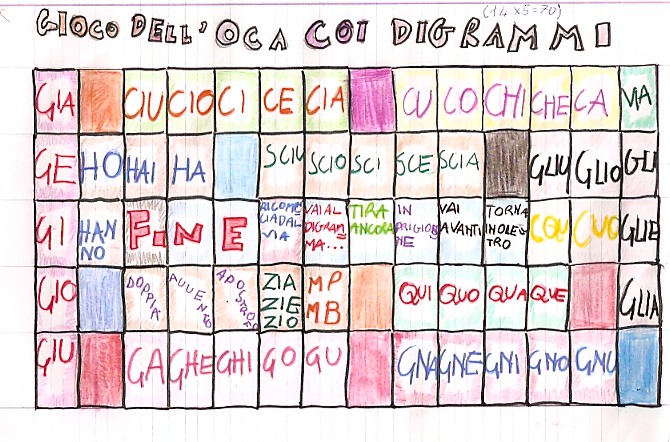 (14x5=70)
GIOCO DELL'OCA COI DIGRAMMI
GIA CIU CIO CI CE CIA CU CO CHI CHE CA VIA
GE HO HAI HA SCIU SCIO SCI SCE SCIA GLIU GLIO GLI
GI HANNO FINE RICOMINCIA DAL VIA VAI AL DIGRAMMA... TIRA ANCORA IN PRIGIONE VAI AVANTI TORNA INDIETRO CQU CUO GLIE
GIO DOPPIA ACCENTO APOSTROFO ZIA ZIE ZIO MP MB QUI QUO QUA QUE GLIA
GIU GA GHE GHI GO GU GNA GNE GNI GNO GNU